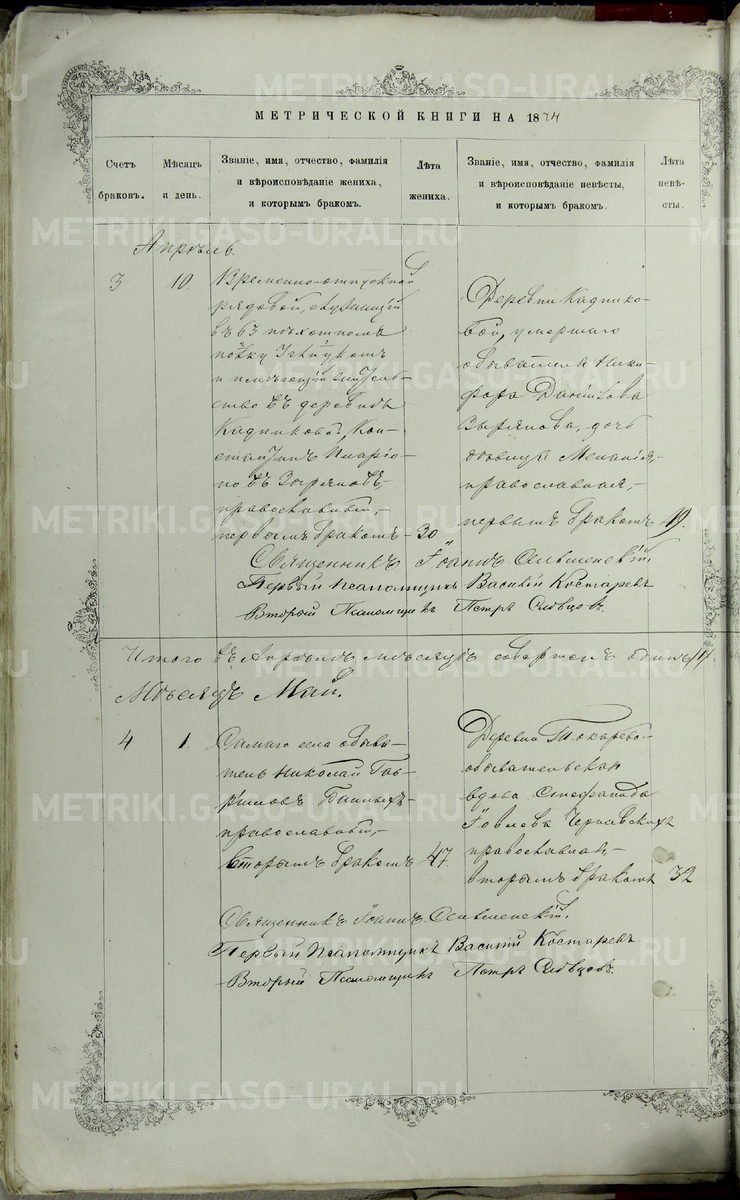 МЕТРИЧЕСКОЙ КНИГИ НА 1874
Счетъ браковъ.
Мѣсяцъ и день.
Званіе, имя, отчество, фамилія
и вѣроисповѣданіе жениха,
и которымъ бракомъ.
Лѣта жениха.
Званіе, имя, отчество, фамилія
и вѣроисповѣданіе невѣсты,
и которымъ бракомъ.
Лѣта невѣсты.
Апрѣль.
3
10
Временно-отпускной
рядовой, служащій
въ 63 пѣхотномъ
полку
и имѣющій жительство
въ деревнѣ
Кадниковой, Константинъ
Иларіоновъ
Зыряновъ,
православный,
первымъ бракомъ
30
Деревни Кадниковой,
умершаго
обывателя Никифора
Данилова
Зырянова, дочь
дѣвица Меланія,
православная,
первымъ бракомъ
19.
Священникъ Іоаннъ
Первый Псаломщикъ Василій Костаревъ
Второй Псаломщикъ Петръ Слѣвцовъ.
Итого въ Апрѣлѣ мѣсяцѣ совершенъ одинъ /1/.
Мѣсяцъ Май.
4
1.
Самаго села обыватель
Николай Гавриловъ
Бѣлыхъ
православный,
вторымъ бракомъ
47
Деревни Токаревой
обывательская
вдова Стефанида
Іовлева Чернавскихъ
православная,
вторымъ бракомъ
32
Священникъ Іоаннъ
Первый Псаломщикъ Василій Костаревъ
Второй Псаломщикъ Петръ Слѣвцовъ.
METRIKI.GASO-URAL.RU